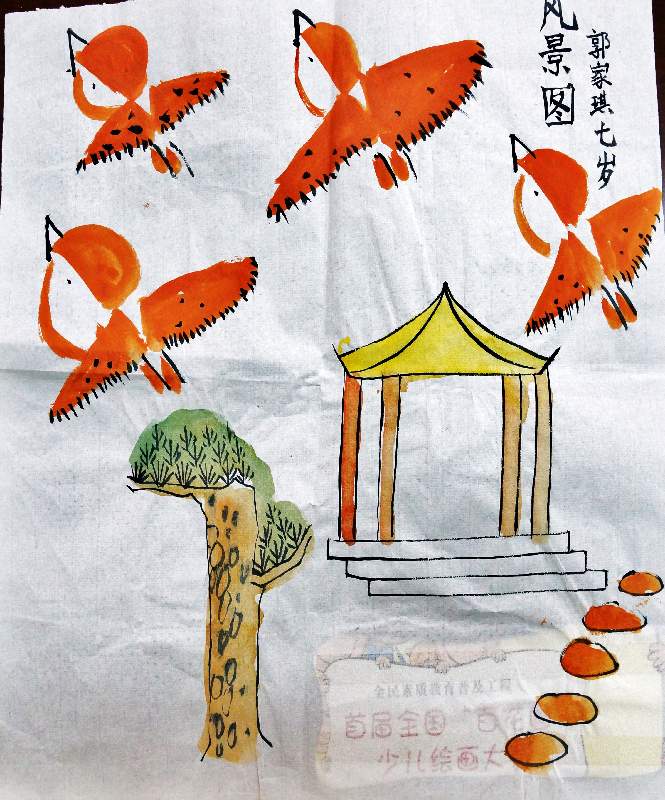 风景图
郭家琪七岁
全民素质教育普及工程
首届全国“百花
少儿绘画大